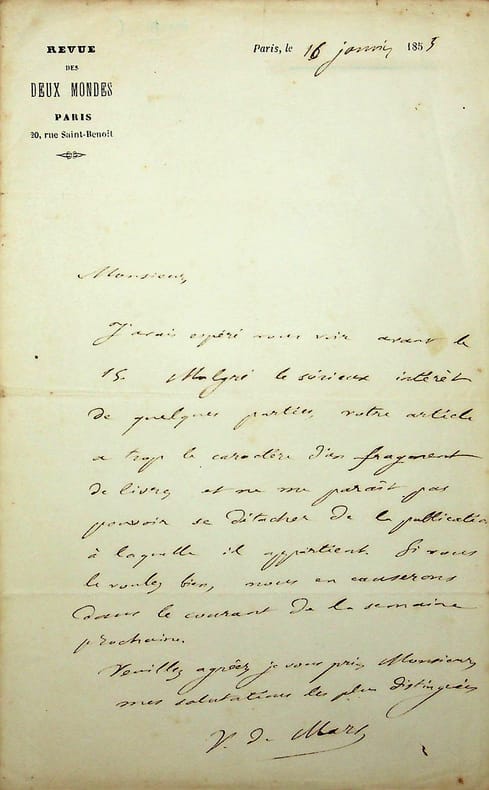 REVUE
DES
DEUX MONDES
PARIS
20, rue Saint-Benoît
Paris, le 16 janvier 1853
Monsieur,
J'avais espéré vous voir avant le
15. Malgré le sérieux intérêt
de quelques parties, votre article
a trop le caractère d'un fragment
de livre, et ne me paraît pas
pouvoir se détacher de la publication
à laquelle il appartient. Si vous
le voulez bien, nous en causerons
dans le courant de la semaine
prochaine.
Veuillez agréer, je vous prie, Monsieur,
mes salutations les plus distinguées
V. de Mars